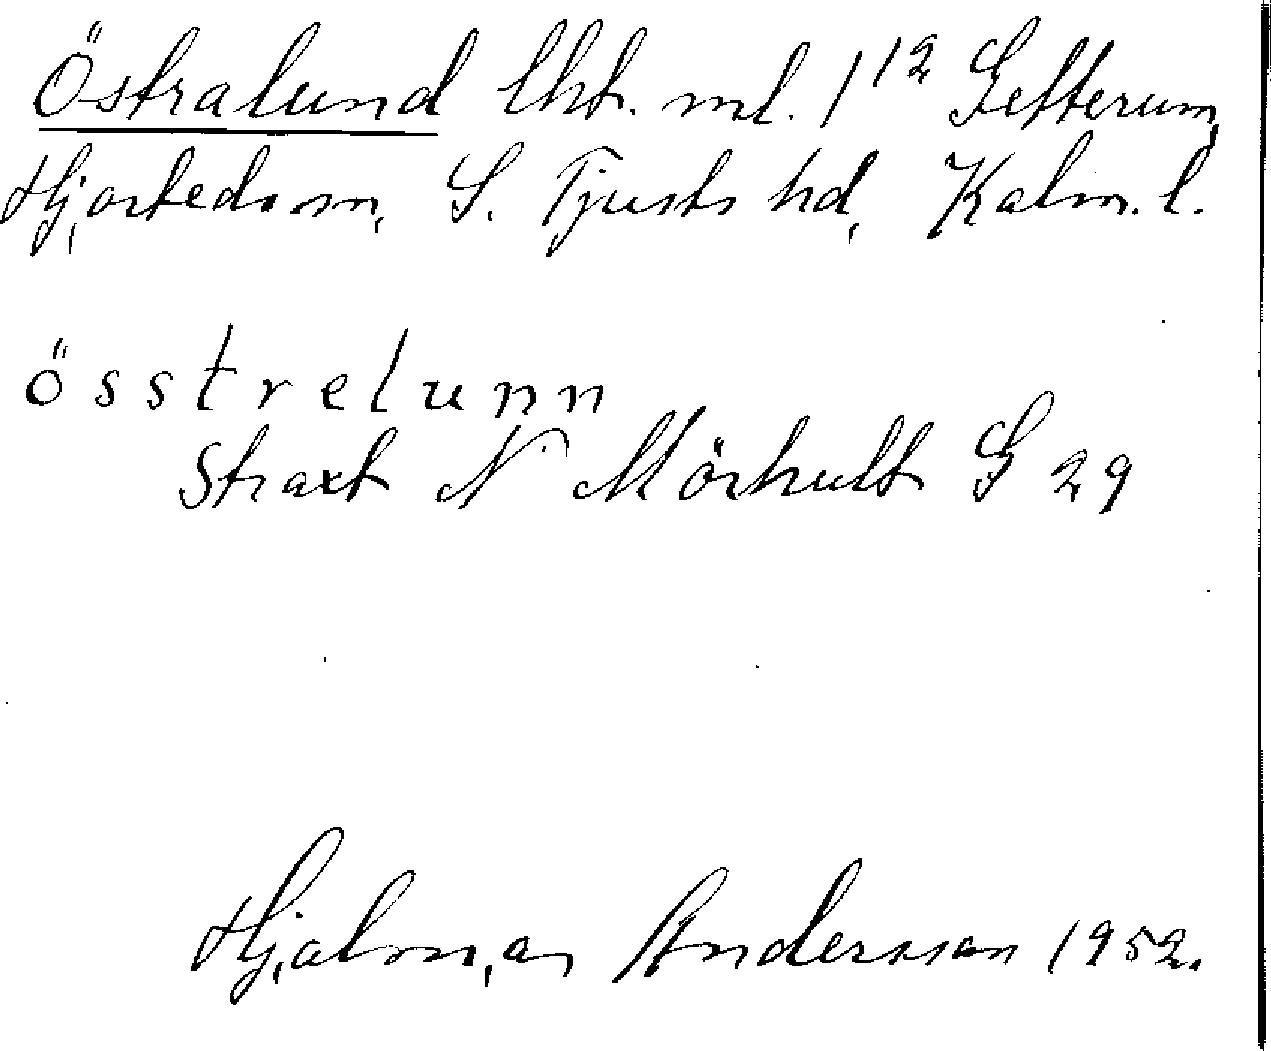 Östralund lht. ml. 1¹² Getterum,
Hjorteds sn, S. Tjusts hd, Kalm. l.
össtrelunn
Straxt N Mörhult G 29
Hjalmar Andersson 1952.